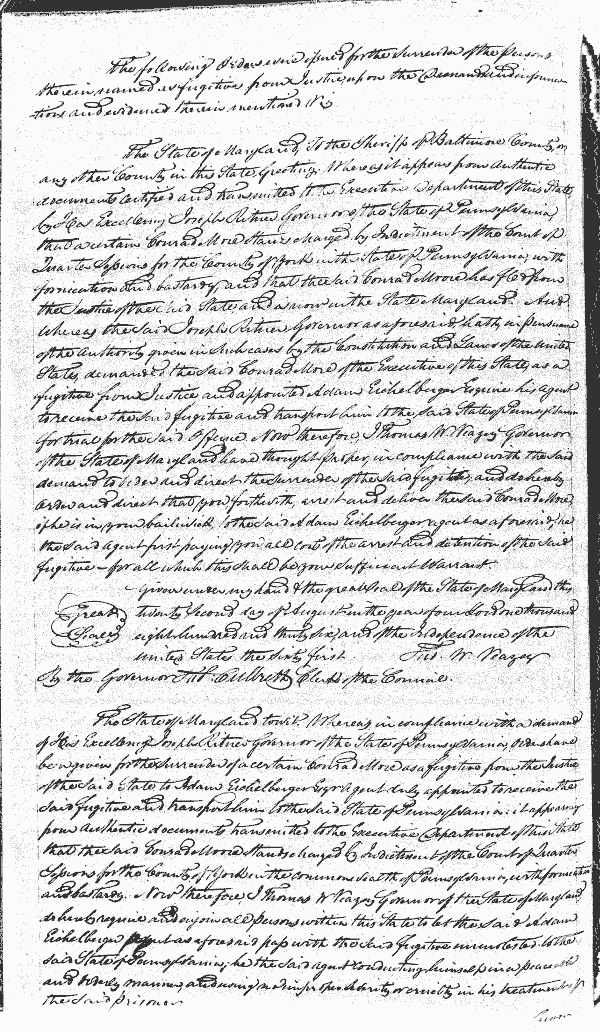 The following Orders were issued for the Surrender of the Persons
therein named as fugitives from Justice, upon the Demand and informa
tions and evidence therein mentioned Viz
The State of Maryland, To the Sheriff of Baltimore County, or
any other County in this State, Greeting. Whereas it appears from Authentic
documents certified and transmitted to the Executive Department of this State
by His Excellency Joseph Ritner Governor of the State of Pennsylvania,
that a certain Conrad More Stands charged by Indictment of the Court of
Quarter Sessions for the County of York in the State of Pennsylvania, with
fornication and bastardy, and that the said Conrad Moore has fled from
the Justice of the said State, and is now in the State Maryland. And
Whereas the said Joseph Ritner Governor as aforesaid, hath, in pursuance
of the Authority given in such cases by the Constitution and Laws of the United
States, demanded the said Conrad More of the Executive of this State, as a
fugitive from Justice and appointed Adam Eichelberger Esquire his agent
to receive the said fugitive and transport him to the said State of Pennsylvania
for trial for the said Offence. Now therefore, I Thomas W. Veazey Governor
of the State of Maryland have thought proper, in compliance with the said
demand to order and direct the Surrender of the said fugitive, and do hereby
order and direct that you forthwith, arrest and deliver the said Conrad More
if he is in your bailiwick, to the said Adam Eichelberger agent as aforesaid, he
the said Agent first paying you all costs of the arrest and detention of the said
fugitive - for all which this shall be your sufficient Warrant.
Given under my hand & the great Seal of the State of Maryland this
Great twenty Second day of August in the year of our Lord one thousand
Seal eight hundred and thirty six, and of the Independence of the
United States the sixty first. Tho. W. Veazey
By the Governor Th. Culbreth Clerk of the Council.
The State of Maryland to wit. Whereas in compliance with a demand
of His Excellency Joseph Ritner Governor of the State of Pennsylvania, Orders have
been given for the Surrender of a certain Conrad More as a fugitive from the Justice
of the said State to Adam Eichelberger Esqr Agent duly appointed to receive the
said fugitive and transport him to the said State of Pennsylvania: it appearing
from Authentic documents transmitted to the Executive Department of this State
that the said Conrad Moore Stands charged by Indictment of the Court of Quarter
Sessions for the County of York in the commonwealth of Pennsylvania, with fornication
and bastardy. Now therefore, I Thomas W Veazey Governor of the State of Maryland
do hereby require and enjoin all persons within this State to let the said Adam
Eichelberger Agent as aforesaid pass with the said fugitive unmolested to the
said State of Pennsylvania; he the said agent conducting himself in a peaceable
and orderly manner, and using no improper severity or cruelty in his treatment of
the said prisoner
Given